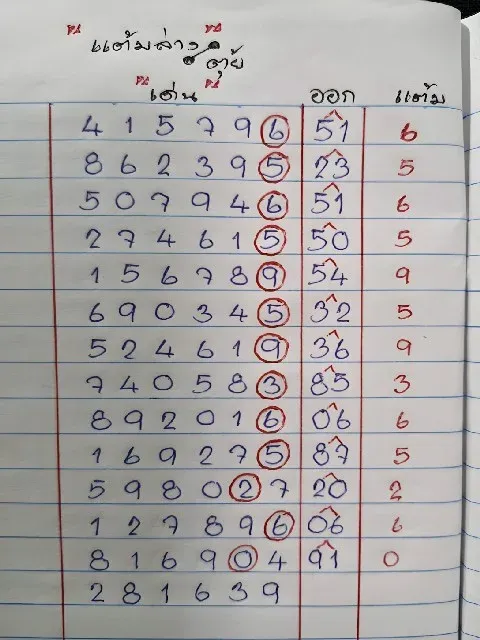 แต้มล่าง
ตุ้ย
เด่น ออก แต้ม
4 1 5 7 9 6 51 6
8 6 2 3 9 5 23 5
5 0 7 9 4 6 51 6
2 7 4 6 1 5 50 5
1 5 6 7 8 9 54 9
6 9 0 3 4 5 32 5
5 2 4 6 1 9 36 9
7 4 0 5 8 3 85 3
8 9 2 0 1 6 06 6
1 6 9 2 7 5 87 5
5 9 8 0 2 7 20 2
1 2 7 8 9 6 06 6
8 1 6 9 0 4 91 0
2 8 1 6 3 9